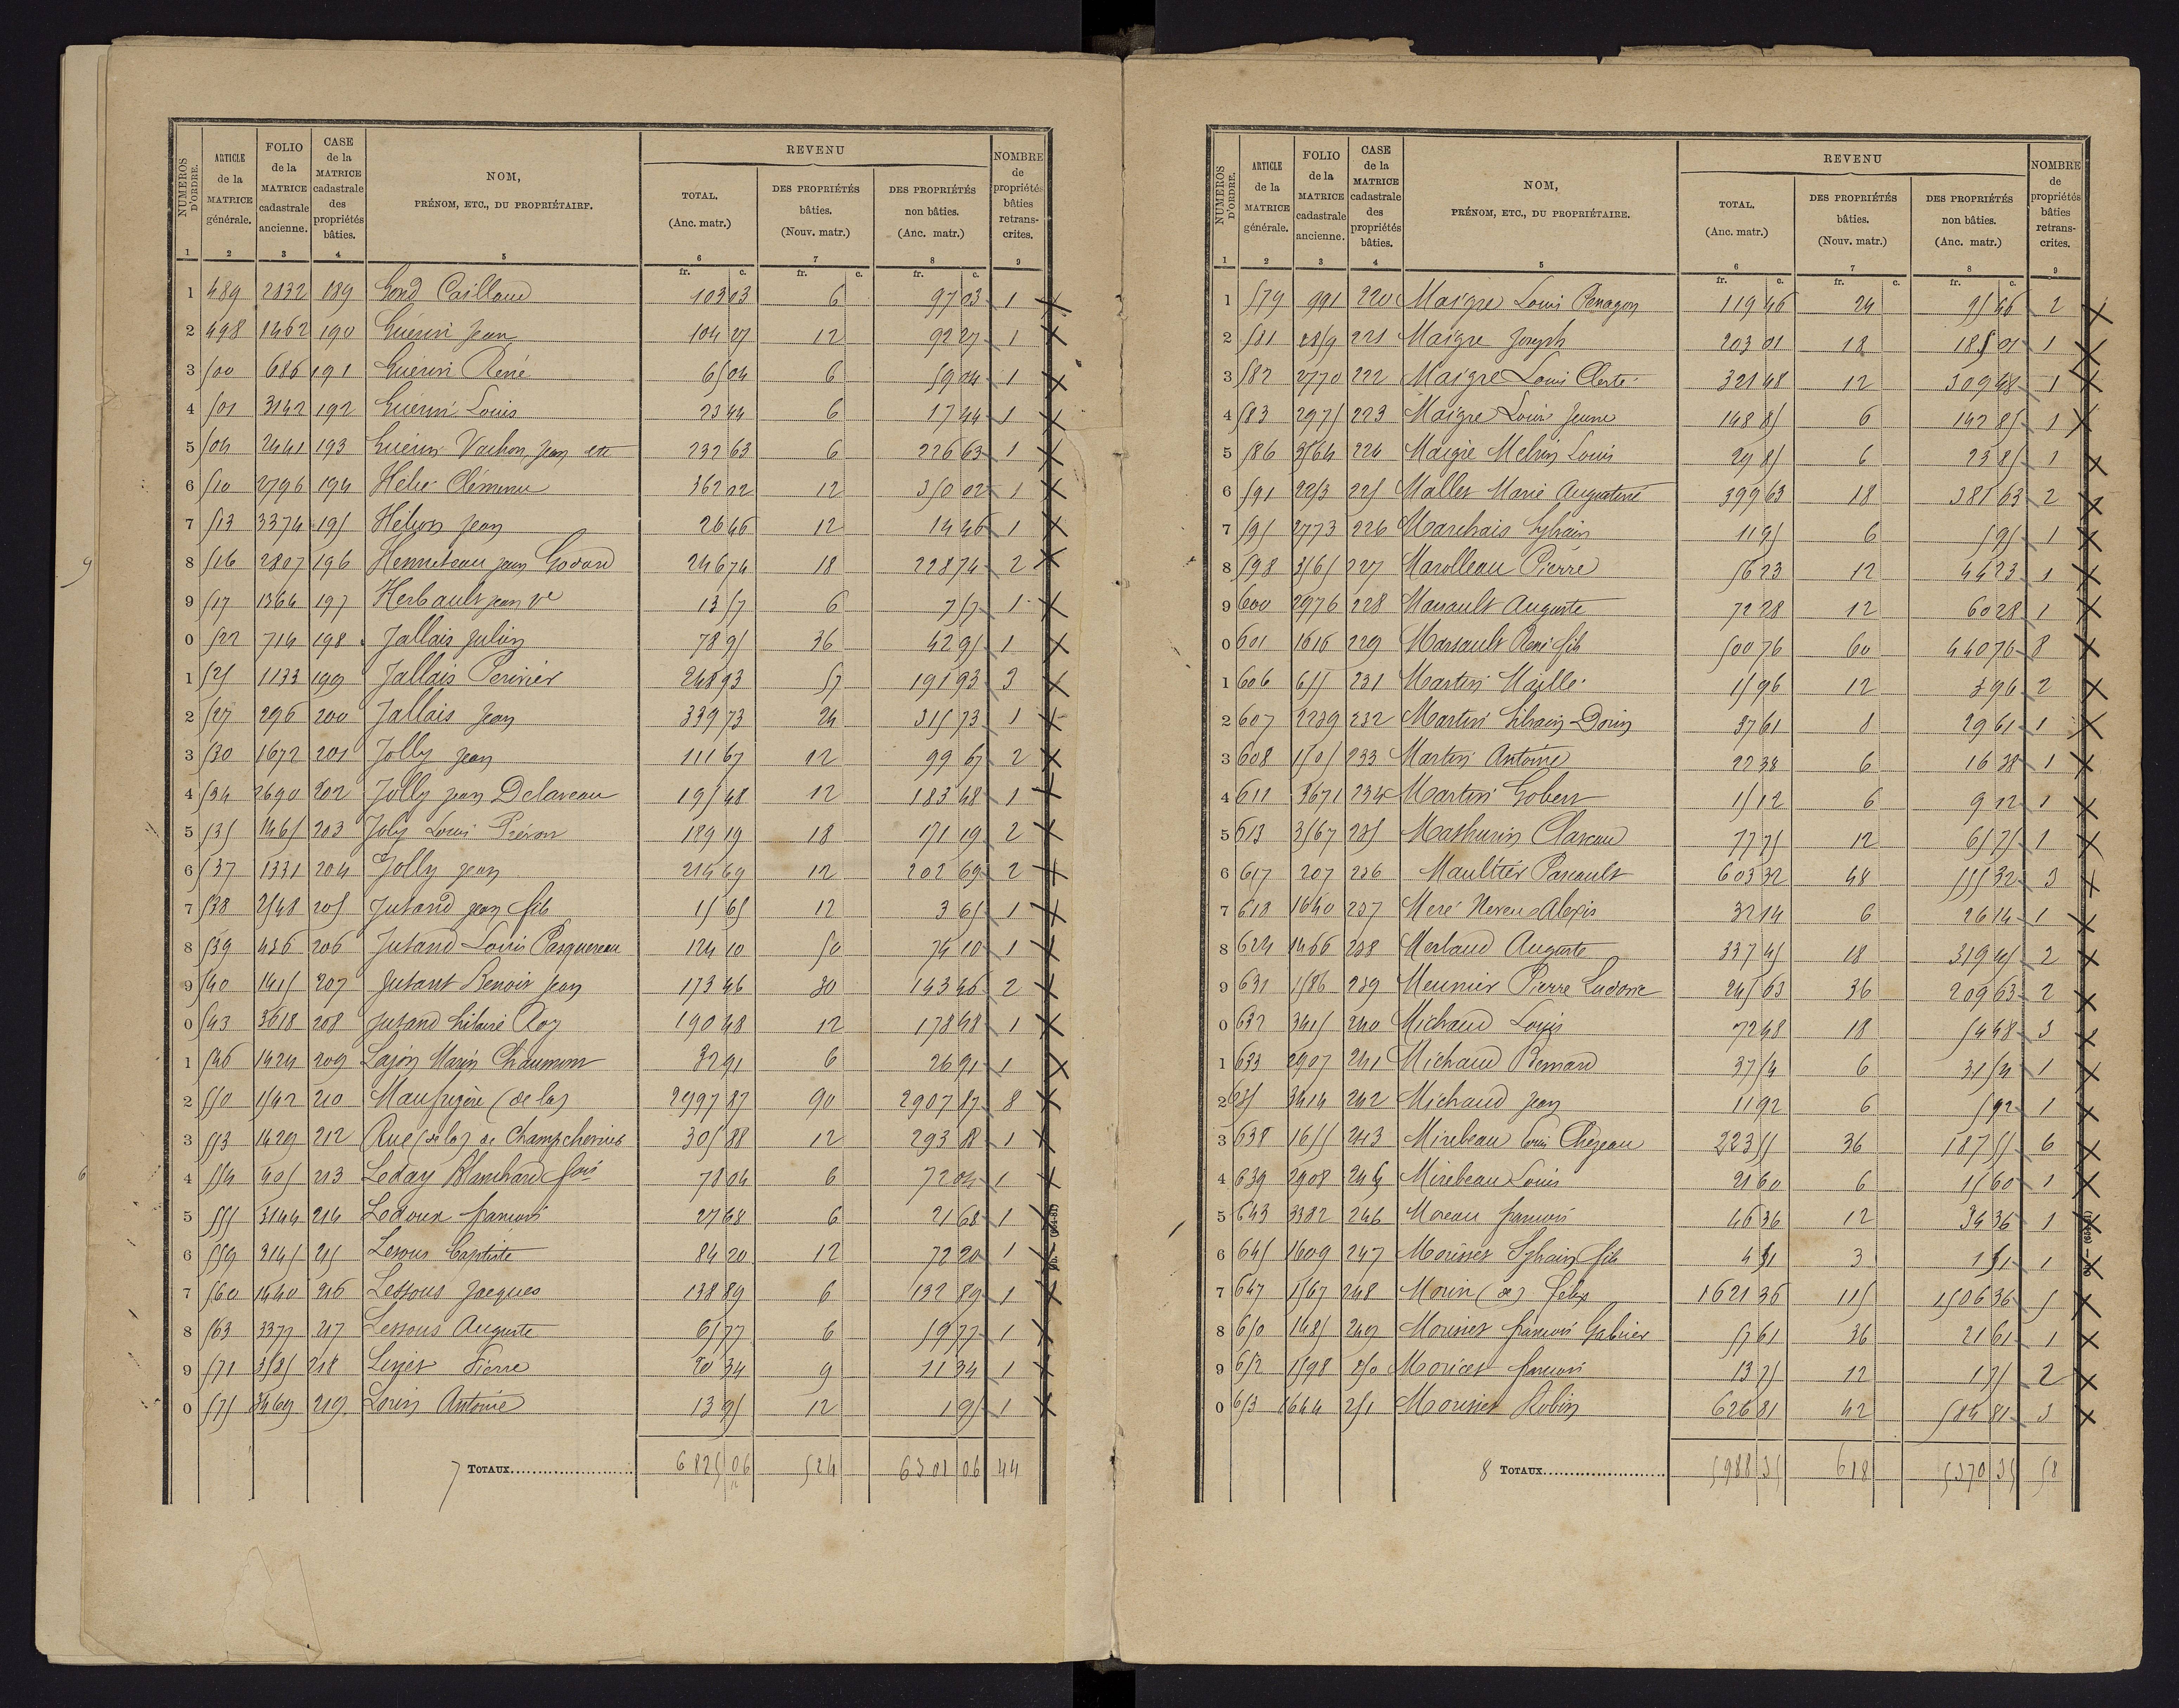 NUMÉROS D'ORDRE. | ARTICLE de la MATRICE générale. | FOLIO de la MATRICE cadastrale ancienne. | CASE de la MATRICE cadastrale des propriétés bâties. | NOM, PRÉNOM, ETC., DU PROPRIÉTAIRE. | REVENU TOTAL. (Anc. matr.) | DES PROPRIÉTÉS bâties. (Nouv. matr.) | DES PROPRIÉTÉS non bâties. (Anc. matr.) | NOMBRE de propriétés bâties retranscrites.
1 2 3 4 5 6 7 8 9
fr. c. fr. c. fr. c.
1 489 2832 189 Gond Caillaud 103 03 6 97 03 1 X
2 498 1462 190 Guérin Jean 104 27 12 92 27 1 X
3 500 686 191 Guérin René 65 04 6 59 04 1 X
4 501 3142 192 Guérin Louis 23 44 6 17 44 1 X
5 504 2441 193 Guérin Vachon Jean etc 232 63 6 226 63 1 X
6 510 2796 194 Helie 362 02 12 350 02 1 X
7 513 3374 195 Hélion Jean 26 46 12 14 46 1 X
8 516 2807 196 Henneteau Jean Godard 246 74 18 228 74 2 X
9 517 1364 197 Herbault Jean Ve 13 57 6 7 57 1 X
0 522 714 198 Jallais Julien 78 95 36 42 95 1 X
1 525 1133 199 Jallais Perivier 248 93 57 191 93 3 X
2 527 296 200 Jallais Jean 339 73 24 315 73 1 X
3 530 1672 201 Jolly Jean 111 67 12 99 67 2 X
4 534 2690 202 Jolly Jean Delaveau 195 48 12 183 48 1 X
5 535 1465 203 Joly Louis 189 19 18 171 19 2 X
6 537 1331 204 Jolly Jean 214 69 12 202 69 2 X
7 538 2548 205 Jutand Jean fils 15 65 12 3 65 1 X
8 539 436 206 Jutand Louis Pasquereau 124 10 50 74 10 1 X
9 540 1415 207 Jutant Benoir Jean 173 46 30 143 46 2 X
0 543 3618 208 Jutand hilaire Roy 190 48 12 178 48 1 X
1 546 1424 209 Lajon Marin Chaumon 32 91 6 26 91 1 X
2 550 1542 210 Maufrigère (de la) 2997 87 90 2907 87 8 X
3 553 1429 212 Rue (de la) de Champchevrier 305 88 12 293 88 1 X
4 554 405 213 Leday Blanchard fois 78 04 6 72 04 1 X
5 555 3144 214 Ledoux francois 27 68 6 21 68 1 X
6 559 3145 215 Lesour Baptiste 84 20 12 72 20 1 X
7 560 1440 216 Lessous Jacques 138 89 6 132 89 1 X
8 563 3377 217 Lessous Auguste 65 77 6 59 77 1 X
9 571 3535 218 Linjet Pierre 20 34 9 11 34 1 X
0 575 3469 219 Lorin Antoine 13 95 12 1 95 1 X
7 TOTAUX 6825 06 524 6301 06 44
NUMÉROS D'ORDRE. | ARTICLE de la MATRICE générale. | FOLIO de la MATRICE cadastrale ancienne. | CASE de la MATRICE cadastrale des propriétés bâties. | NOM, PRÉNOM, ETC., DU PROPRIÉTAIRE. | REVENU TOTAL. (Anc. matr.) | DES PROPRIÉTÉS bâties. (Nouv. matr.) | DES PROPRIÉTÉS non bâties. (Anc. matr.) | NOMBRE de propriétés bâties retranscrites.
1 2 3 4 5 6 7 8 9
fr. c. fr. c. fr. c.
1 579 991 220 Maigre Louis Penagon 119 46 24 95 46 2 X
2 581 2859 221 Maigre Joseph 203 01 18 185 01 1 X
3 582 2770 222 Maigre Louis Clerté 321 48 12 309 48 1 X
4 583 2975 223 Maigre Louis Jeune 148 85 6 142 85 1 X
5 586 3564 224 Maigre Melvin Louis 29 85 6 23 85 1 X
6 591 2253 225 Mallet Marie Augustine 399 63 18 381 63 2 X
7 595 2773 226 Marchais Sylvain 11 95 6 5 95 1 X
8 598 3565 227 Marolleau Pierre 56 23 12 44 23 1 X
9 600 2976 228 Marsault Auguste 72 28 12 60 28 1 X
0 601 1616 229 Marsault René fils 500 76 60 440 76 8 X
1 606 655 231 Martin Maillé 15 96 12 3 96 2 X
2 607 2239 232 Martin Silvain Dorin 37 61 8 29 61 1 X
3 608 1505 233 Martin Antoine 22 38 6 16 38 1 X
4 611 3671 234 Martin Gobert 15 12 6 9 12 1 X
5 613 3567 235 Mathurin Clareau 77 75 12 65 75 1 X
6 617 207 236 Maultier Parault 603 32 48 555 32 3 X
7 618 1640 237 Meré Neveu Alexis 32 14 6 26 14 1 X
8 624 1466 238 Merlaud Auguste 337 45 18 319 45 2 X
9 631 1586 239 Meunier Pierre Ludovic 245 63 36 209 63 2 X
0 632 3415 240 Michaud Louis 72 48 18 54 48 3 X
1 633 2907 241 Michaud Bernard 37 54 6 31 54 1 X
2 635 3414 242 Michaud Jean 11 92 6 5 92 1 X
3 638 1655 243 Mirebeau Louis Chezeau 223 55 36 187 55 6 X
4 639 2908 245 Mirebeau Louis 21 60 6 15 60 1 X
5 643 3382 246 Moreau francois 46 36 12 34 36 1 X
6 645 1609 247 Morisset Sylvain fils 4 51 3 1 51 1 X
7 647 1567 248 Morin (de) Félix 1621 36 115 1506 36 5 X
8 650 1485 249 Morisset francois Gabrier 57 61 36 21 61 1 X
9 652 1598 250 Moricet francois 13 75 12 1 75 2 X
0 653 1644 251 Morisset Robin 626 81 42 584 81 3 X
8 TOTAUX 5988 35 618 5370 35 58